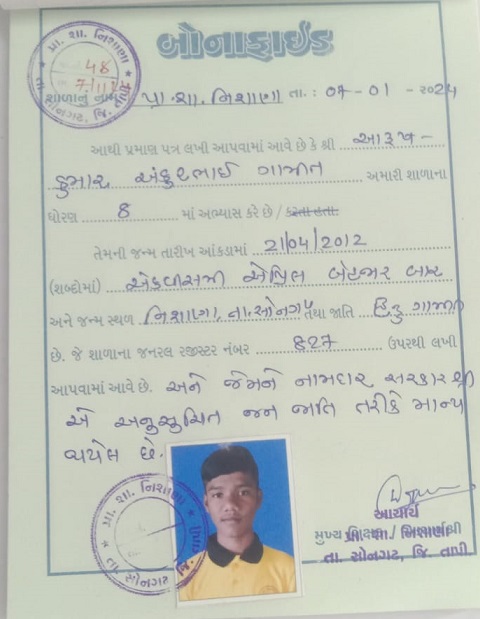 બોનાફાઈડ
પ્રા. શા. નિશાણા
તા. સોનગઢ, જિ. તાપી
48
શાળાનું નામ પ્રા. શા. નિશાણા તા. : 07-01-2024
આથી પ્રમાણ પત્ર લખી આપવામાં આવે છે કે શ્રી આરૂષ-
કુમાર અંકુરભાઈ ગામીત અમારી શાળાના
ધોરણ 8 માં અભ્યાસ કરે છે / કરતા હતા.
તેમની જન્મ તારીખ આંકડામાં 21/04/2012
(શબ્દોમાં) એકવીસમી એપ્રિલ બેહજાર બાર
અને જન્મ સ્થળ નિશાણા, તા.સોનગઢ તથા જાતિ હિંદુ ગામીત
છે. જે શાળાના જનરલ રજીસ્ટર નંબર 827 ઉપરથી લખી
આપવામાં આવે છે. અને જેમને નામદાર સરકારશ્રી
એ અનુસુચિત જન જાતિ તરીકે માન્ય
થયેલ છે.
પ્રા. શા. નિશાણા
તા. સોનગઢ, જિ. તાપી
આચાર્ય
પ્રા. શા. નિશાણા
તા. સોનગઢ, જિ. તાપી